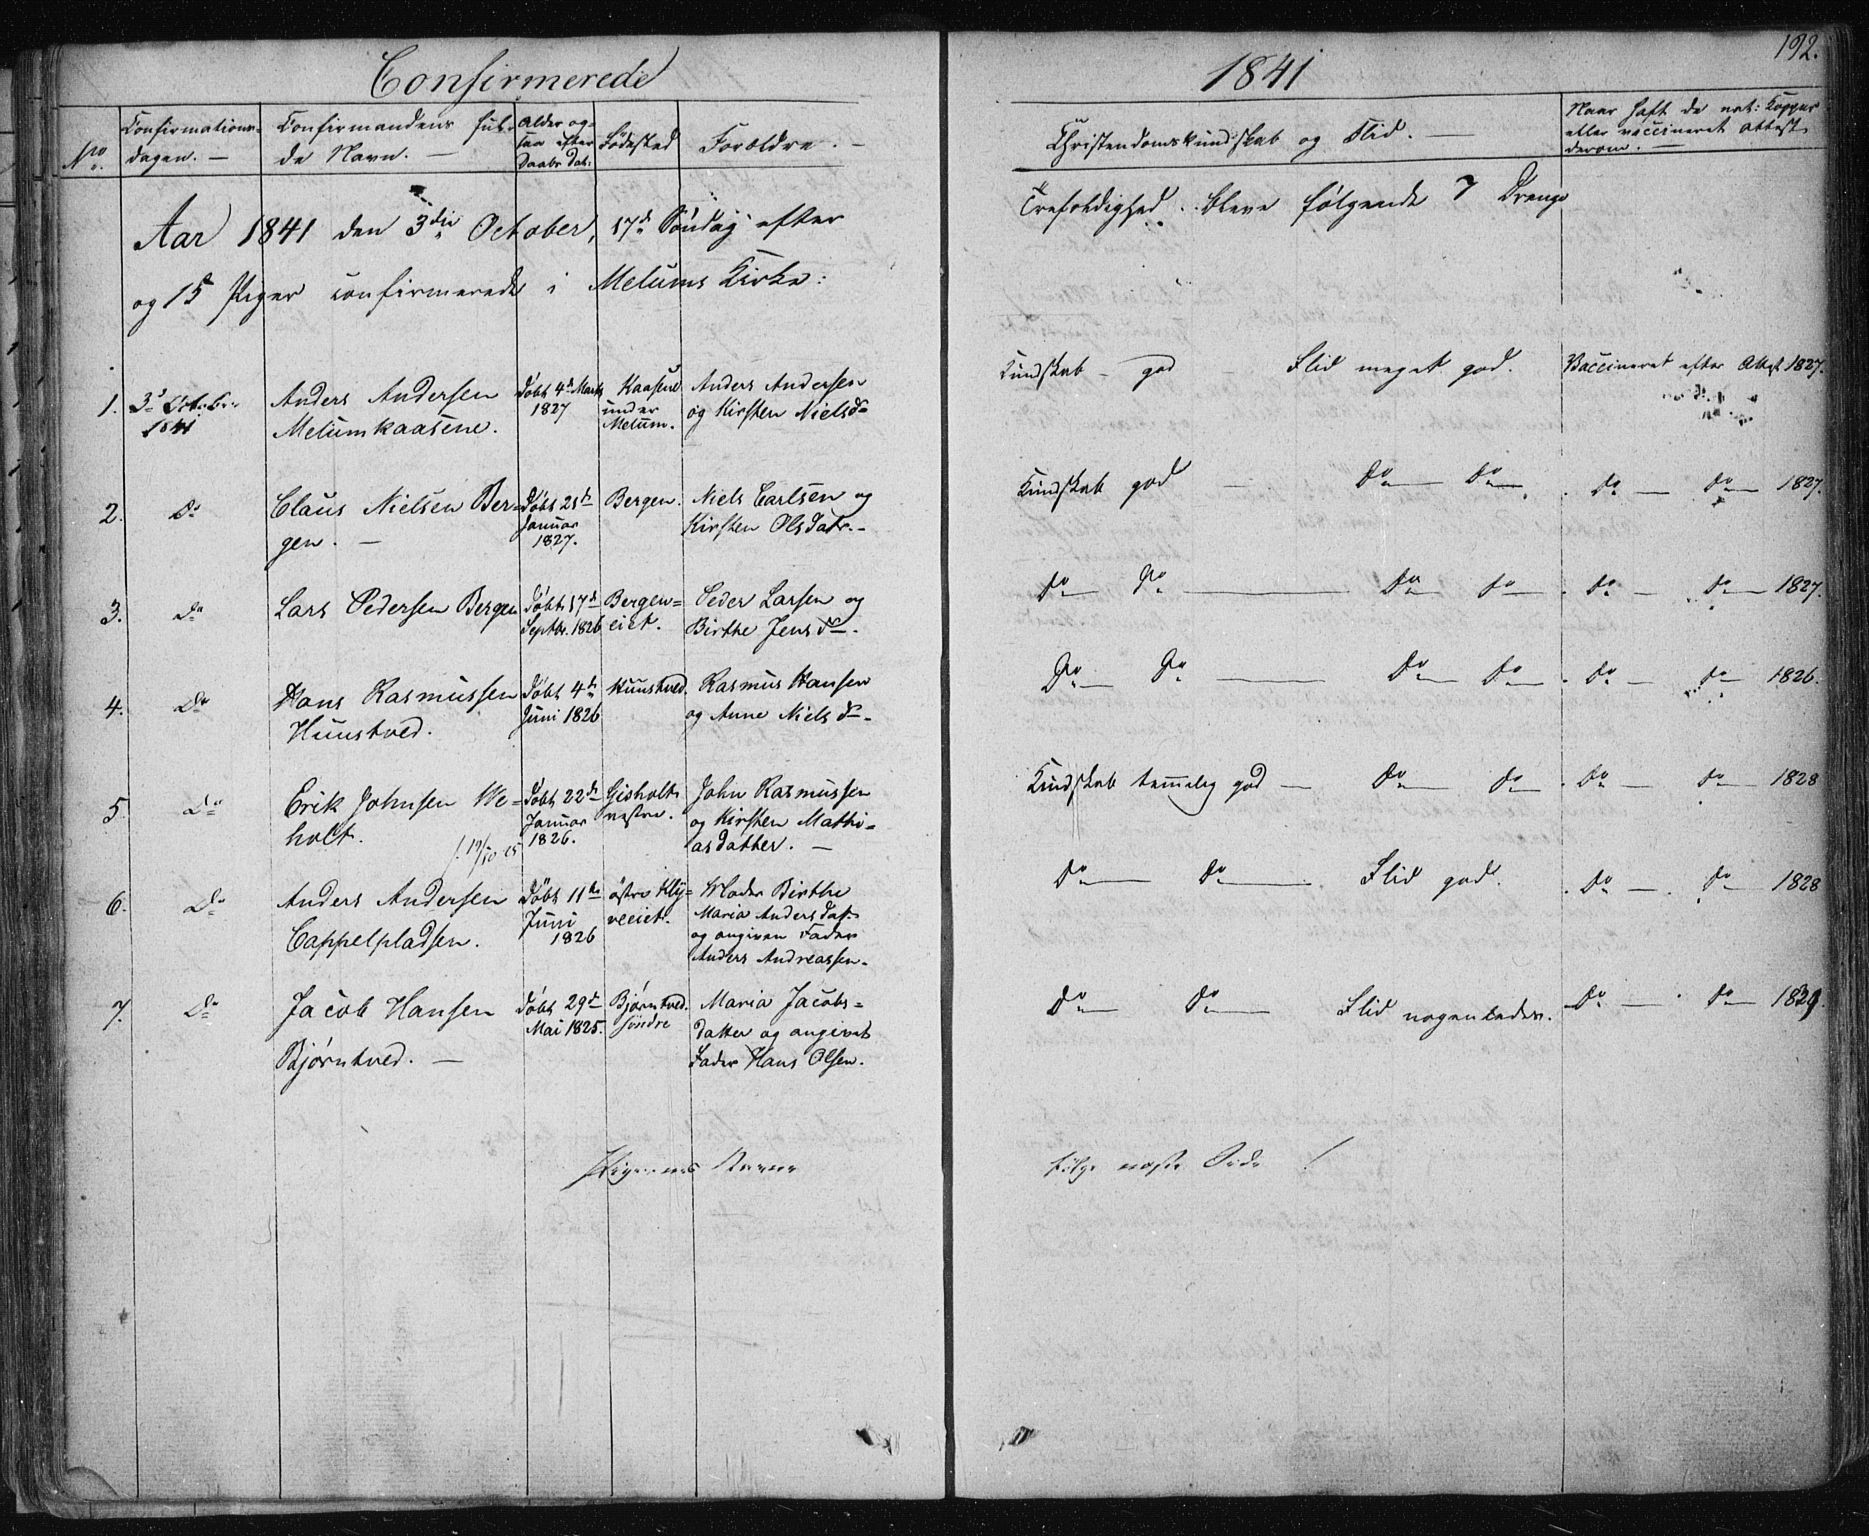 192.
Confirmerede 1841
No.
Confirmations-
dagen. —
Confirmandens ful-
de Navn. —
Alder og-
saa efter
Daabs Dat:
Fødested
Forældre. —
Christendomskundskab og Flid. —
Naar haft de nat: Kopper
eller vaccineret Attest
derom. —
Aar 1841 den 3die October, 17de Søndag efter Trefoldighed bleve følgende 7 Drenge
og 15 Piger confirmerede i Melums Kirke:
1. 3d October
1841
Anders Andersen
Melumkaasene.
Døbt 4de Marts
1827
Kaasene
under
Melum.
Anders Andersen
og Kirsten Nielsdr
Kundskab — god — Flid meget god.
Vaccineret efter Attest 1827.
2. Do
Claus Nielsen Ber-
gen. —
Døbt 21de
Januar
1827.
Bergen.
Niels Carlsen og
Kirsten Olsdatr. -
Kundskab god — Do — Do —. Do — Do — 1827.
3. Do
Lars Pedersen Bergen
Døbt 17de
Septbr. 1826
Bergen=
eiet.
Peder Larsen og
Birthe Jensdr.
Do — Do — Do — Do — Do — Do — 1827.
4. Do
Hans Rasmussen
Hunstved.
Døbt 4de
Juni 1826
Hunstved.
Rasmus Hansen
og Anne Nielsdr.
Do — Do — Do — Do — Do — Do — 1826.
5. Do
Erik Johnsen We-
holt.
f. 19/10 25
Døbt 22de
Januar
1826.
Gisholt
vestre.
John Rasmussen
og Kirsten Mathi=
asdatter. —
Kundskab temmelig god — Do — Do — Do — Do — 1828
6. Do
Anders Andersen
Cappelpladsen.
Døbt 11te
Juni
1826
østre Kly=
veeiet.
Moder Birthe
Maria Andersdat.
og angiven Fader
Anders Andreassen.
Do — Do — Flid god. Do — Do — 1828
7. Do
Jacob Hansen
Bjørntved. —
Døbt 29de
Mai 1825.
Bjørntved
søndre
Maria Jacobs=
datter og angivet
Fader Hans Olsen.
Do — Do — Flid nogenledes. Do — Do — 1829.
Pigernes Navne følge næste Side /